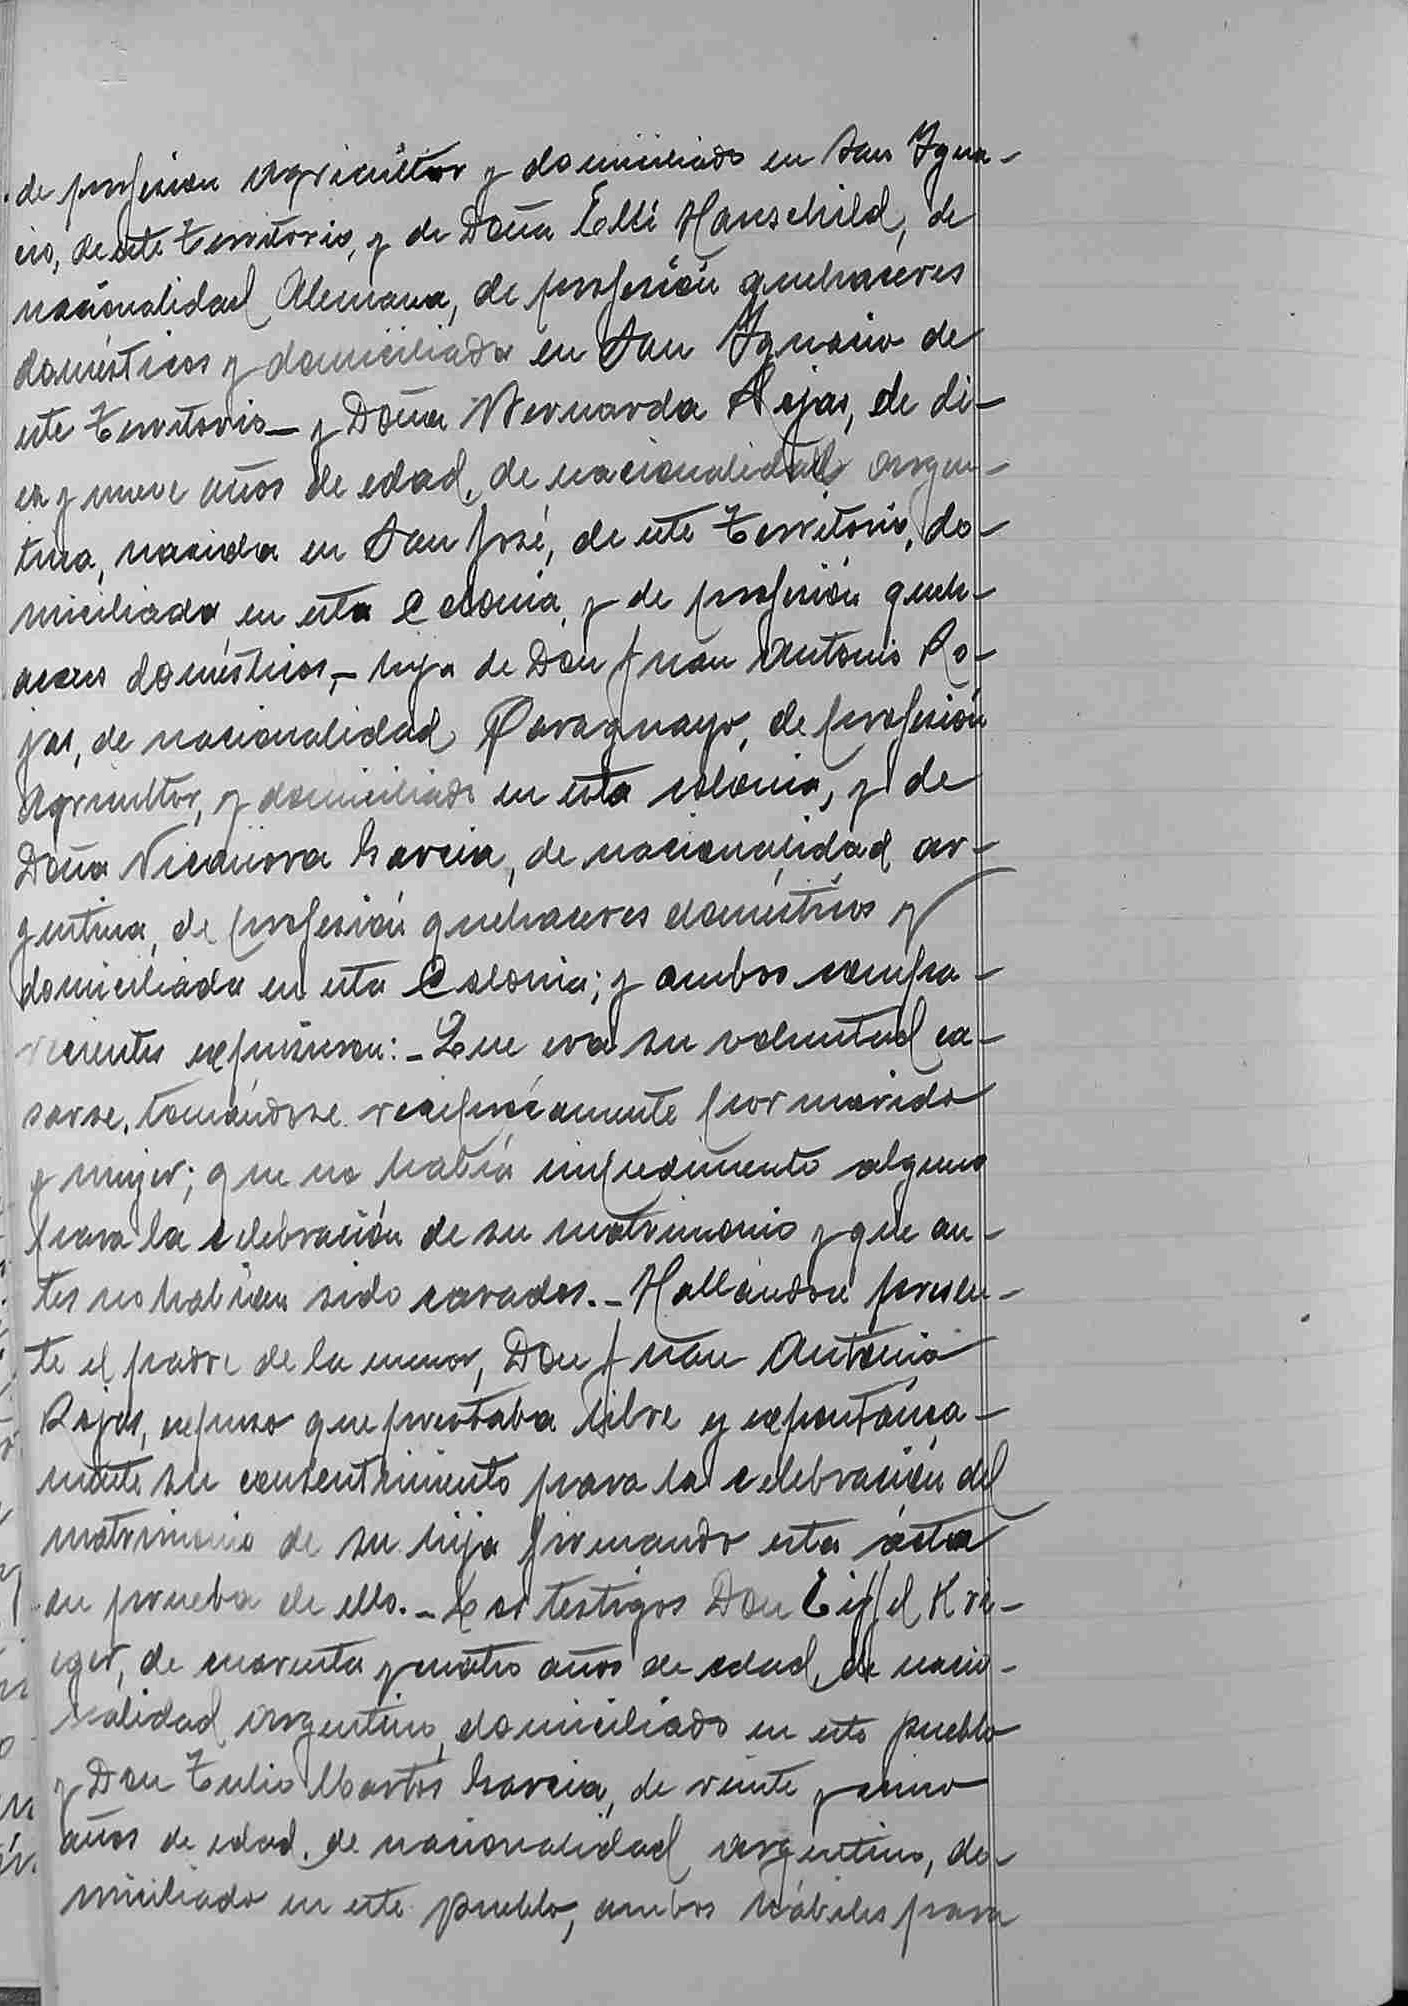 de profesión agricultor y domiciliado en San Igna-
cio, de este Territorio, y de Doña Elli Hauschild, de
nacionalidad Alemana, de profesión quehaceres
domésticos y domiciliada en San Ignacio de
este Territorio_ y Doña Bernarda Rojas, de di-
ez y nueve años de edad, de nacionalidad argen-
tina, nacida en San José, de este Territorio, do-
miciliada en esta Colonia, y de profesión queh-
aceres domésticos,- hija de Don Juan Antonio Ro-
jas, de nacionalidad Paraguayo, de profesión
Agricultor, y domiciliado en esta colonia, y de
Doña Nicanora Garcia, de nacionalidad ar-
gentina, de profesión quehaceres domésticos y
domiciliada en esta Colonia; y ambos compa-
recientes expusieron:- Que era su voluntad ca-
sarse, tomándose recíprocamente por marido
y mujer; que no había impedimento alguno
para la celebración de su matrimonio y que an-
tes no habían sido casados.- Hallándose presen-
te el padre de la menor, Don Juan Antonio
Rojas, expuso que prestaba libre y expontánea-
mente su consentimiento para la celebración del
matrimonio de su hija firmando esta acta
en prueba de ello.- Los testigos Don Eiffel Kri-
eger, de cuarenta y cuatro años de edad, de nacio-
nalidad argentino, domiciliado en este pueblo
y Don Tulio Martos Garcia, de veinte y cinco
años de edad, de nacionalidad argentino, do-
miciliado en este pueblo, ambos hábiles para